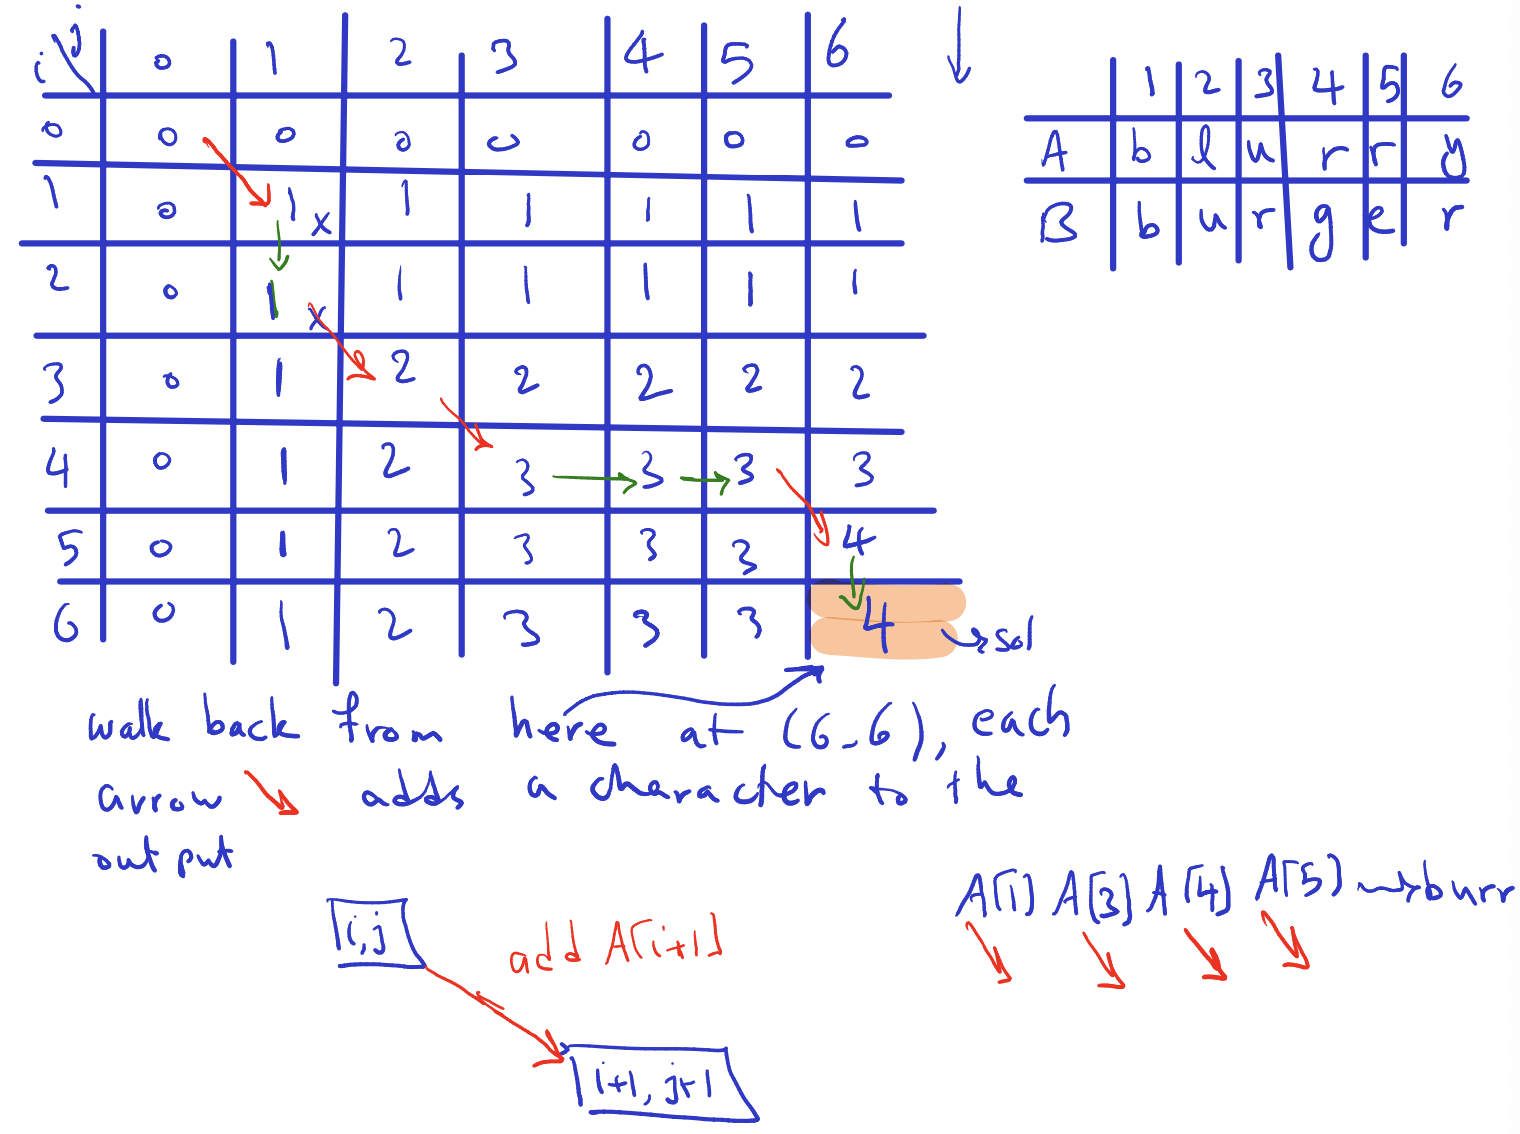 i j 0 1 2 3 4 5 6
0 0 0 0 0 0 0 0
1 0 1 x 1 1 1 1 1
2 0 1 x 1 1 1 1 1
3 0 1 2 2 2 2 2
4 0 1 2 3 3 3 3
5 0 1 2 3 3 3 4
6 0 1 2 3 3 3 4
sol
1 2 3 4 5 6
A b l u r r y
B b u r g e r
walk back from here at (6,6), each
arrow adds a character to the
output
A[1] A[3] A[4] A[5] burr
i,j
add A[i+1]
i+1, j+1